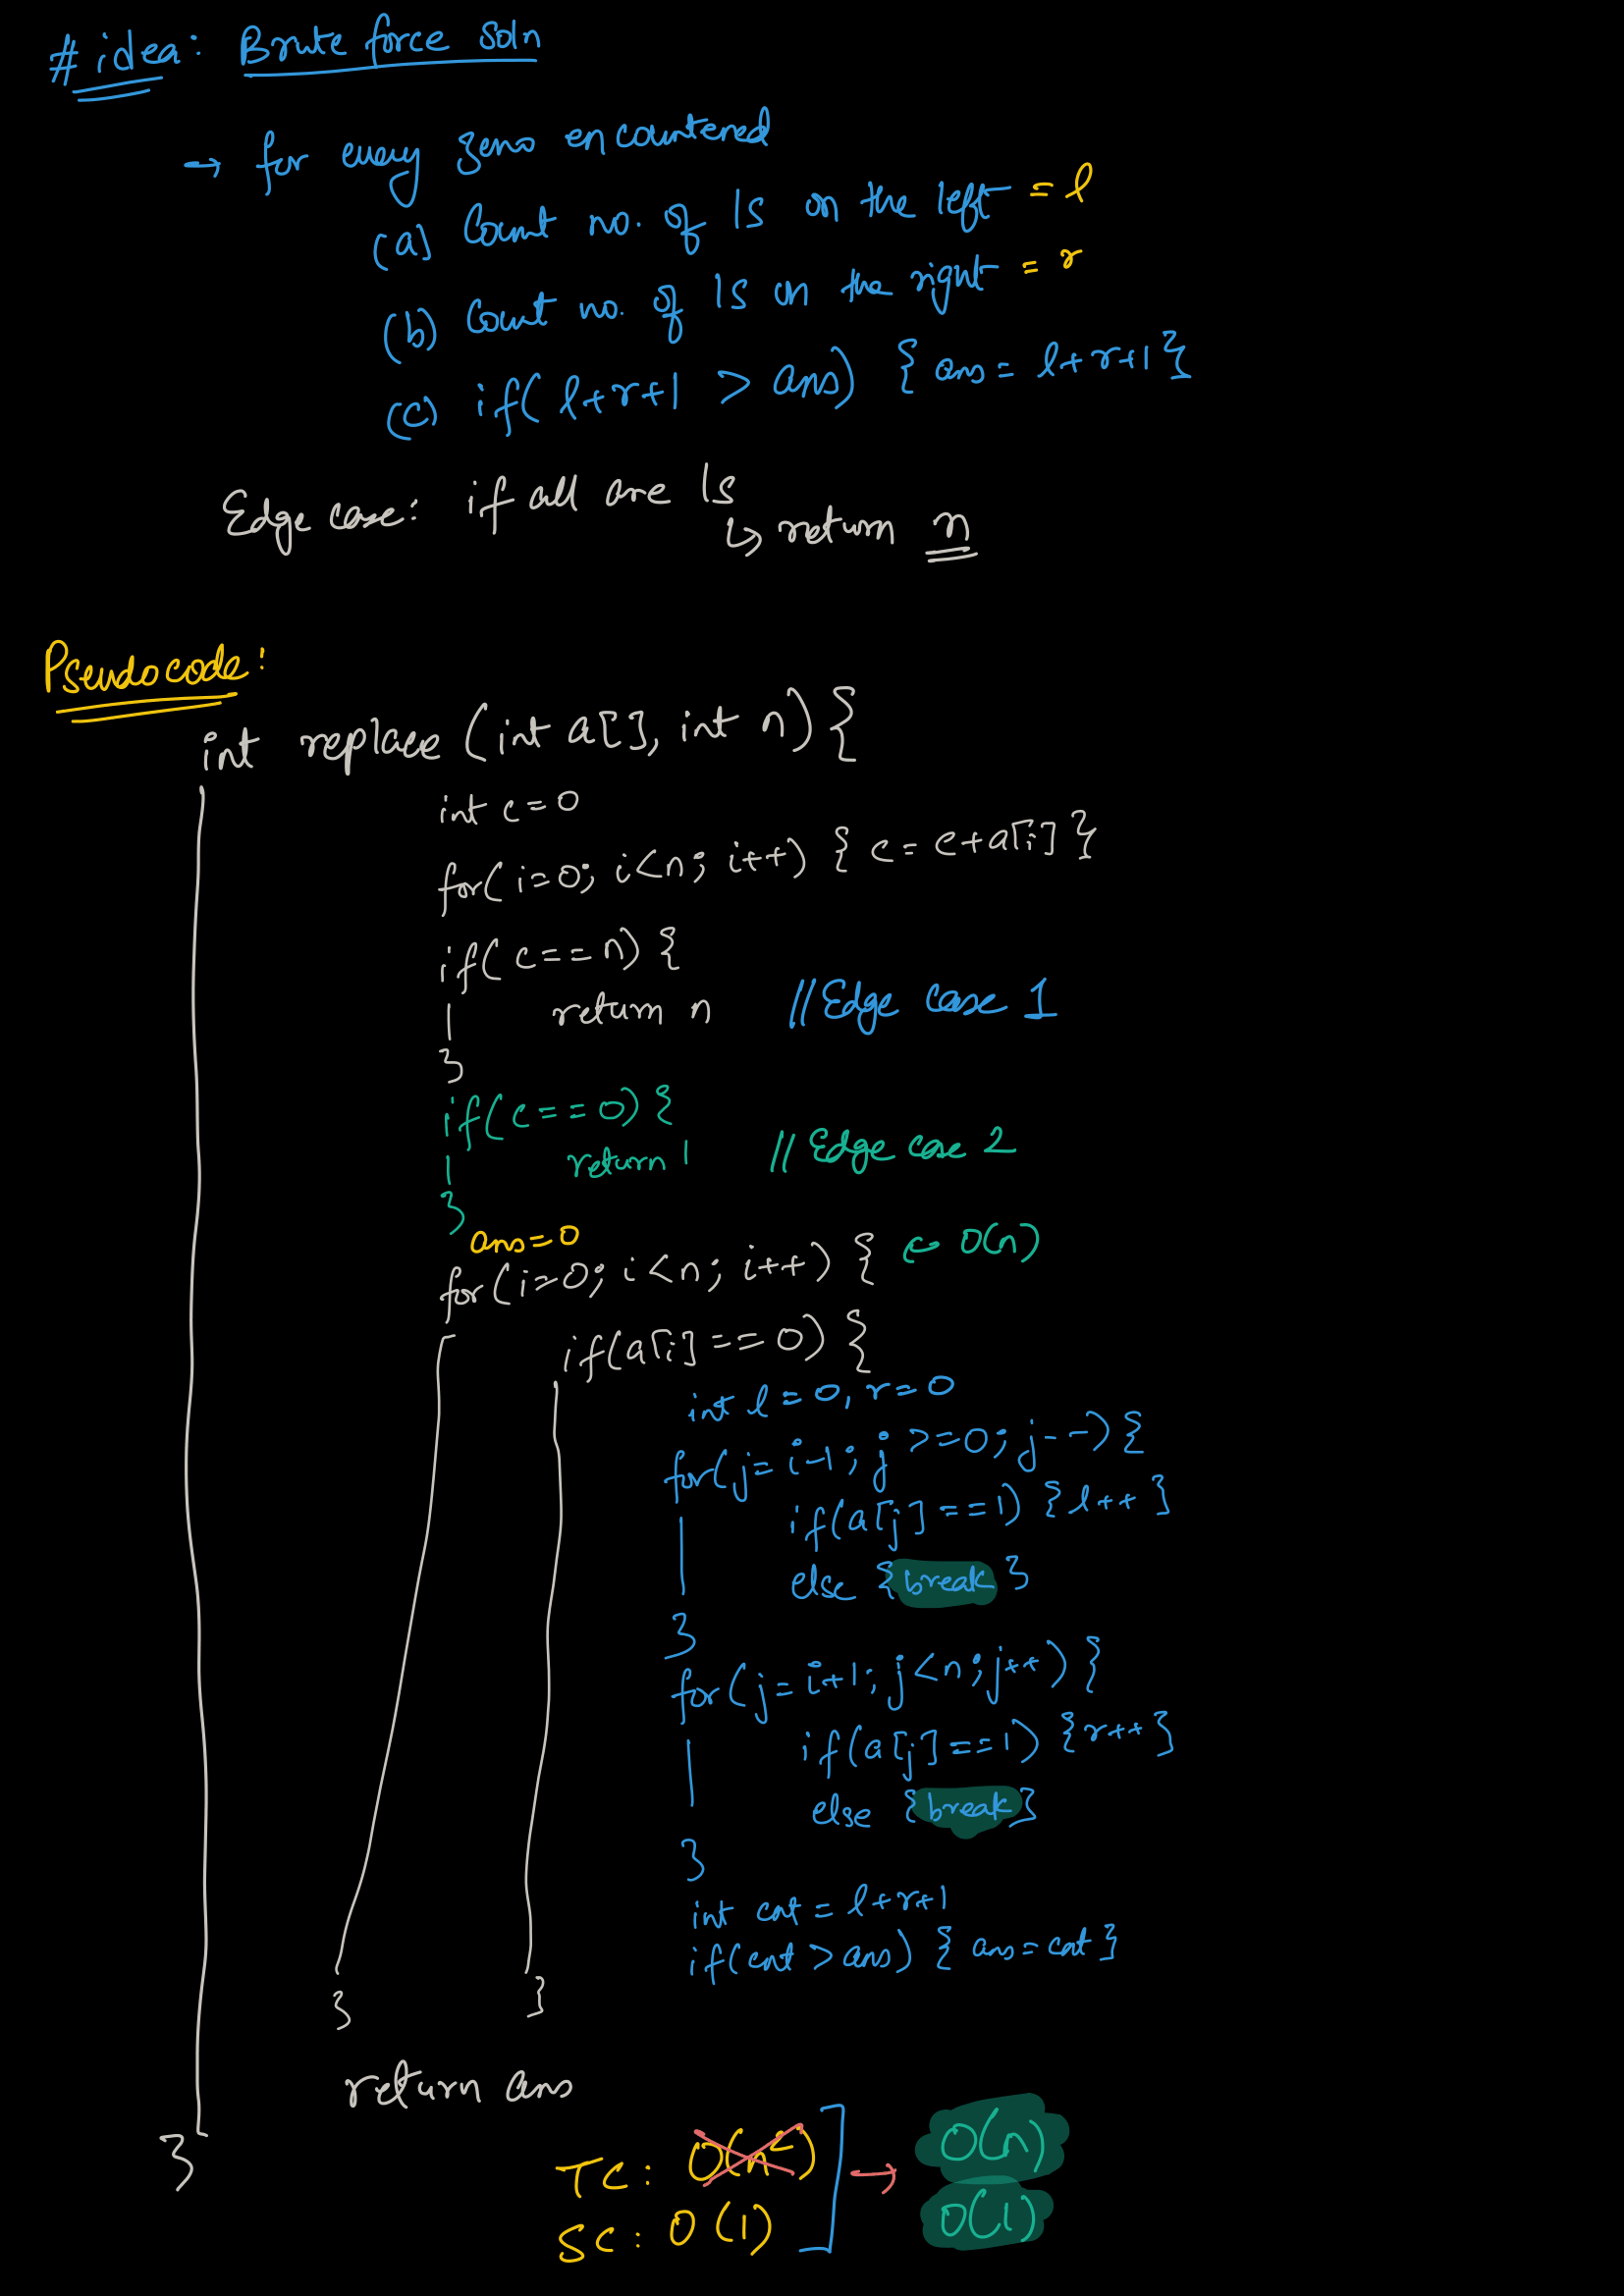 # idea: Brute force soln
→ for every zero encountered
(a) Count no. of 1s on the left = l
(b) Count no. of 1s on the right = r
(c) if( l+r+1 > ans) { ans = l+r+1 }
Edge case: if all are 1s
↳ return n
Pseudocode:
int replace (int a[], int n) {
int c=0
for( i=0; i<n; i++) { c = c+a[i] }
if( c==n) {
return n // Edge case 1
}
if( c==0) {
return 1 // Edge case 2
}
ans=0
for( i=0; i<n; i++) { ← O(n)
if(a[i] == 0) {
int l=0, r=0
for( j= i-1; j >=0; j--) {
if(a[j] ==1) { l++ }
else { break }
}
for( j= i+1; j<n; j++) {
if(a[j] ==1) { r++ }
else { break }
}
int cnt = l+r+1
if(cnt > ans) { ans = cnt }
} }
return ans
}
TC: O(n²) ] → O(n)
SC: O(1) O(1)